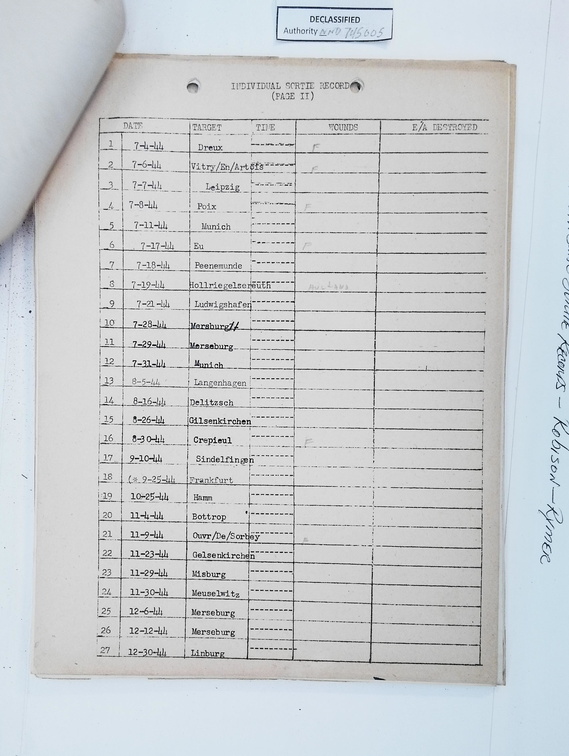 DECLASSIFIED
Authority NND 745005
INDIVIDUAL SORTIE RECORD
(PAGE II)
DATE TARGET TIME WOUNDS E/A DESTROYED
1 7-4-44 Dreux F
2 7-6-44 Vitry/En/Artois F
3 7-7-44 Leipzig
4 7-8-44 Poix F
5 7-11-44 Munich
6 7-17-44 Eu F
7 7-18-44 Peenemunde
8 7-19-44 Hollriegelsereuth
9 7-21-44 Ludwigshafen
10 7-28-44 Mersburg
11 7-29-44 Merseburg
12 7-31-44 Munich
13 8-5-44 Langenhagen
14 8-16-44 Delitzsch
15 8-26-44 Gilsenkirchen
16 8-30-44 Crepieul F
17 9-10-44 Sindelfingen
18 (* 9-25-44 Frankfurt
19 10-25-44 Hamm
20 11-4-44 Bottrop '
21 11-9-44 Ouvr/De/Sorbey
22 11-23-44 Gelsenkirchen
23 11-29-44 Misburg
24 11-30-44 Meuselwitz
25 12-6-44 Merseburg
26 12-12-44 Merseburg
27 12-30-44 Linburg
Records - Robison - Rymer